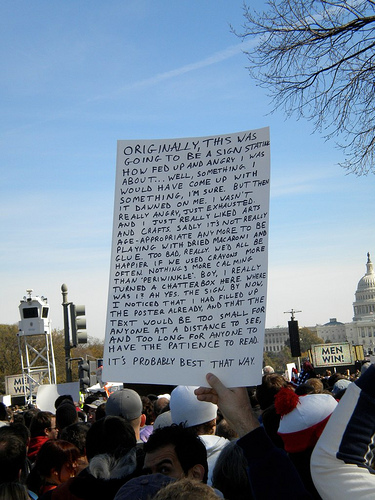 ORIGINALLY, THIS WAS
GOING TO BE A SIGN STATING
HOW FED UP AND ANGRY I WAS
ABOUT... WELL, SOMETHING. I
WOULD HAVE COME UP WITH
SOMETHING, I'M SURE. BUT THEN
IT DAWNED ON ME. I WASN'T
REALLY ANGRY, JUST EXHAUSTED.
AND I JUST REALLY LIKED ARTS
AND CRAFTS. SADLY IT'S NOT REALLY
AGE-APPROPRIATE ANYMORE TO BE
PLAYING WITH DRIED MACARONI AND
GLUE. TOO BAD, REALLY. WE'D ALL BE
HAPPIER IF WE USED CRAYONS MORE
OFTEN. NOTHING'S MORE CALMING
THAN 'PERIWINKLE'. BOY, I REALLY
TURNED A CHATTERBOX HERE. WHERE
WAS I? AH YES. THE SIGN. BY NOW,
I NOTICED THAT I HAD FILLED UP
THE POSTER ALREADY AND THAT THE
TEXT WOULD BE TOO SMALL FOR
ANYONE AT A DISTANCE TO SEE,
AND TOO LONG FOR ANYONE TO
HAVE THE PATIENCE TO READ.
IT'S PROBABLY BEST THAT WAY.
MEN
WIN!
MEN
WIN!